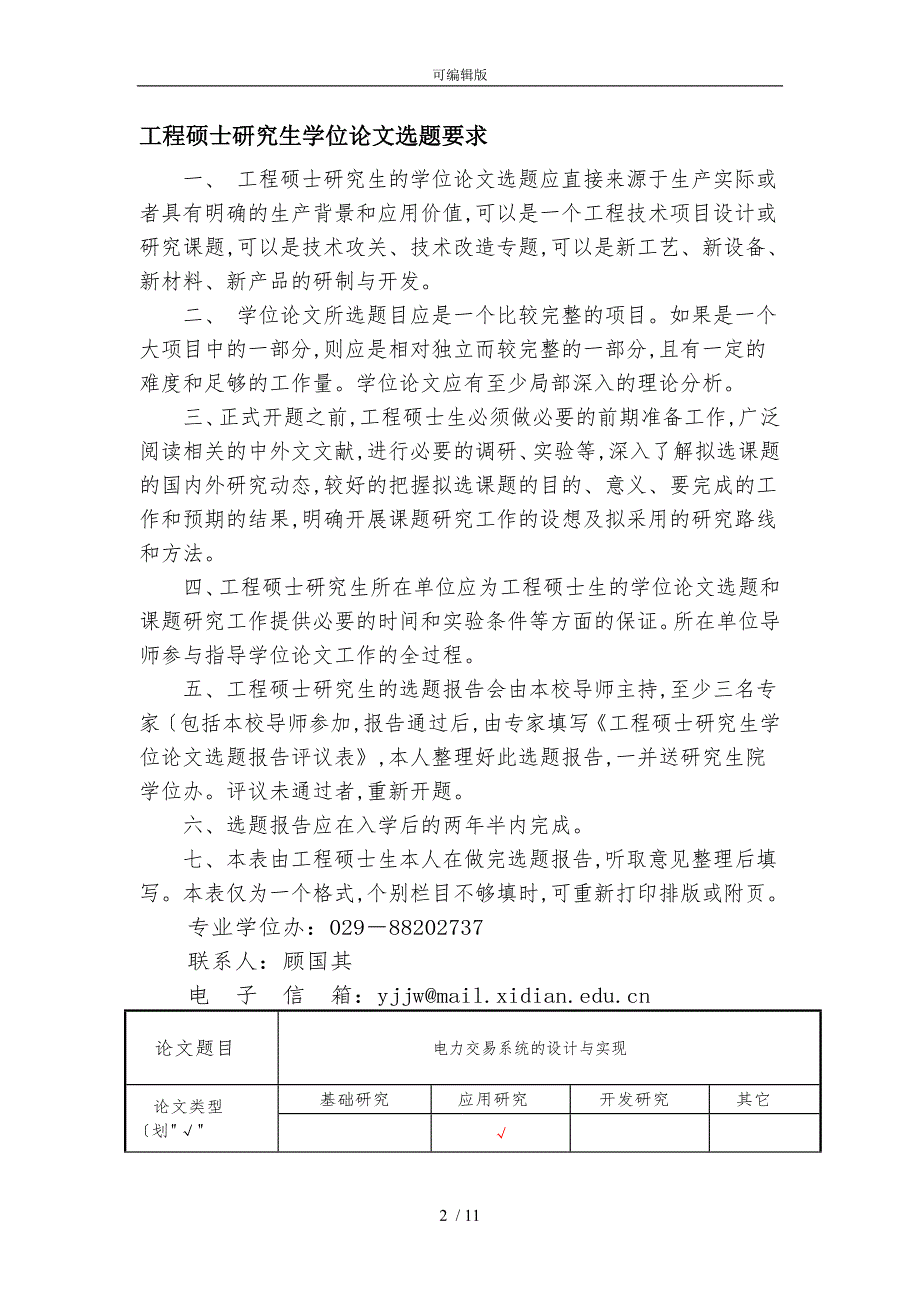 可编辑版
工程硕士研究生学位论文选题要求
一、 工程硕士研究生的学位论文选题应直接来源于生产实际或
者具有明确的生产背景和应用价值,可以是一个工程技术项目设计或
研究课题,可以是技术攻关、技术改造专题,可以是新工艺、新设备、
新材料、新产品的研制与开发。
二、 学位论文所选题目应是一个比较完整的项目。如果是一个
大项目中的一部分,则应是相对独立而较完整的一部分,且有一定的
难度和足够的工作量。学位论文应有至少局部深入的理论分析。
三、正式开题之前,工程硕士生必须做必要的前期准备工作,广泛
阅读相关的中外文文献,进行必要的调研、实验等,深入了解拟选课题
的国内外研究动态,较好的把握拟选课题的目的、意义、要完成的工
作和预期的结果,明确开展课题研究工作的设想及拟采用的研究路线
和方法。
四、工程硕士研究生所在单位应为工程硕士生的学位论文选题和
课题研究工作提供必要的时间和实验条件等方面的保证。所在单位导
师参与指导学位论文工作的全过程。
五、工程硕士研究生的选题报告会由本校导师主持,至少三名专
家〔包括本校导师参加,报告通过后,由专家填写《工程硕士研究生学
位论文选题报告评议表》,本人整理好此选题报告,一并送研究生院
学位办。评议未通过者,重新开题。
六、选题报告应在入学后的两年半内完成。
七、本表由工程硕士生本人在做完选题报告,听取意见整理后填
写。本表仅为一个格式,个别栏目不够填时,可重新打印排版或附页。
专业学位办：029－88202737
联系人：顾国其
电 子 信 箱：yjjw@mail.xidian.edu.cn
论文题目 电力交易系统的设计与实现
论文类型 基础研究 应用研究 开发研究 其它
〔划"√" √
2 / 11